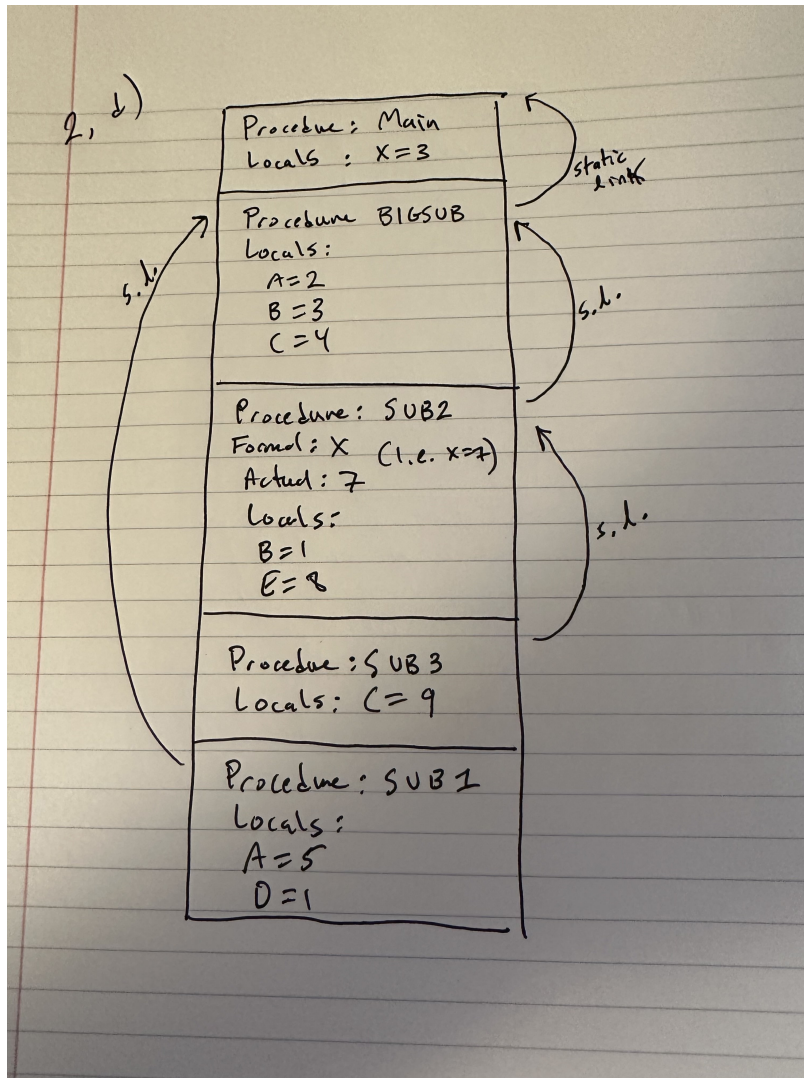 2, d)
Procedue: Main
Locals : X=3
static
link
Procedure BIGSUB
Locals:
A=2
B=3
C=4
s.l.
s.l.
Procedure: SUB2
Formal: X (i.e. x=7)
Actual: 7
Locals:
B=1
E=8
s.l.
Procedue: SUB3
Locals: C=9
Procedue: SUB1
Locals:
A=5
D=1